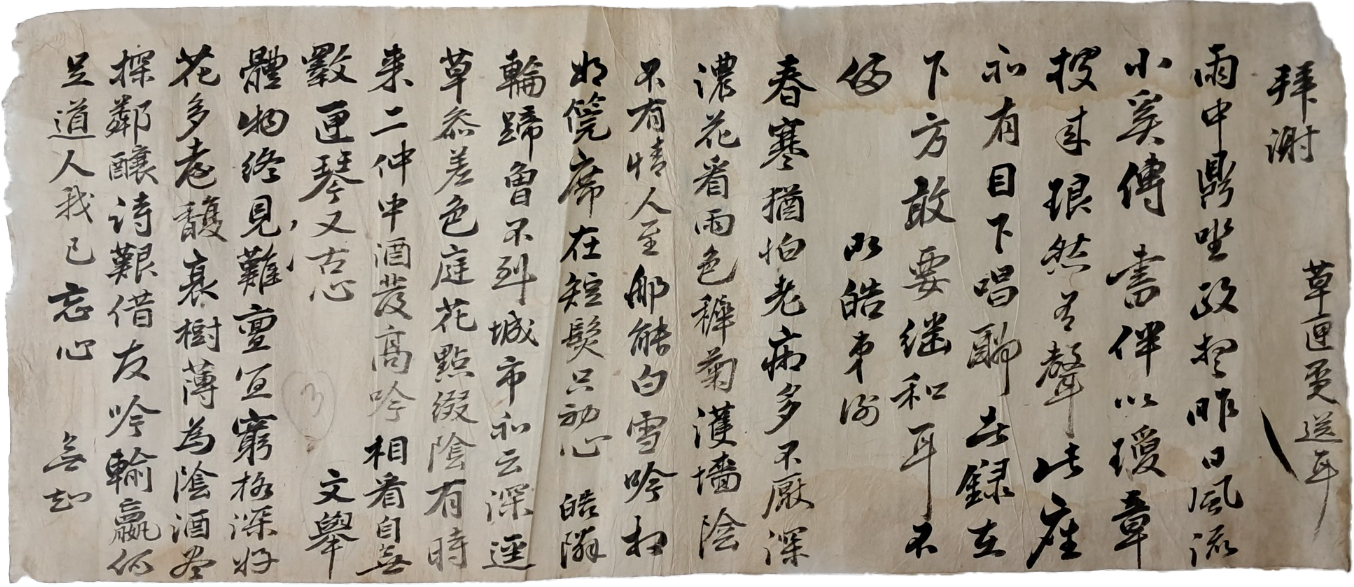 草匣更送耳
拜謝
雨中鼎坐政想昨日風流
小奚傳書伴以瓊章
授來琅然有聲此座
和有目下唱酬玆錄在
下方敢要継和耳不
備 皓弟謝
春寒猶怕老病多不厭深
濃花看雨色穉菊護墻陰
不有情人至那能白雪吟
如傥席在短髮只初心 皓隣
輪蹄曾不到城市和云深逕
草叅差色庭花點綴陰有時
來二仲中酒發高吟相看自無
數匣琴又古心 文擧
體物終見難亶宜窮極深好
花多老馥衰樹薄為陰酒盡
探鄰釀詩艱借友吟輸贏何
足道人我已忘心 無知